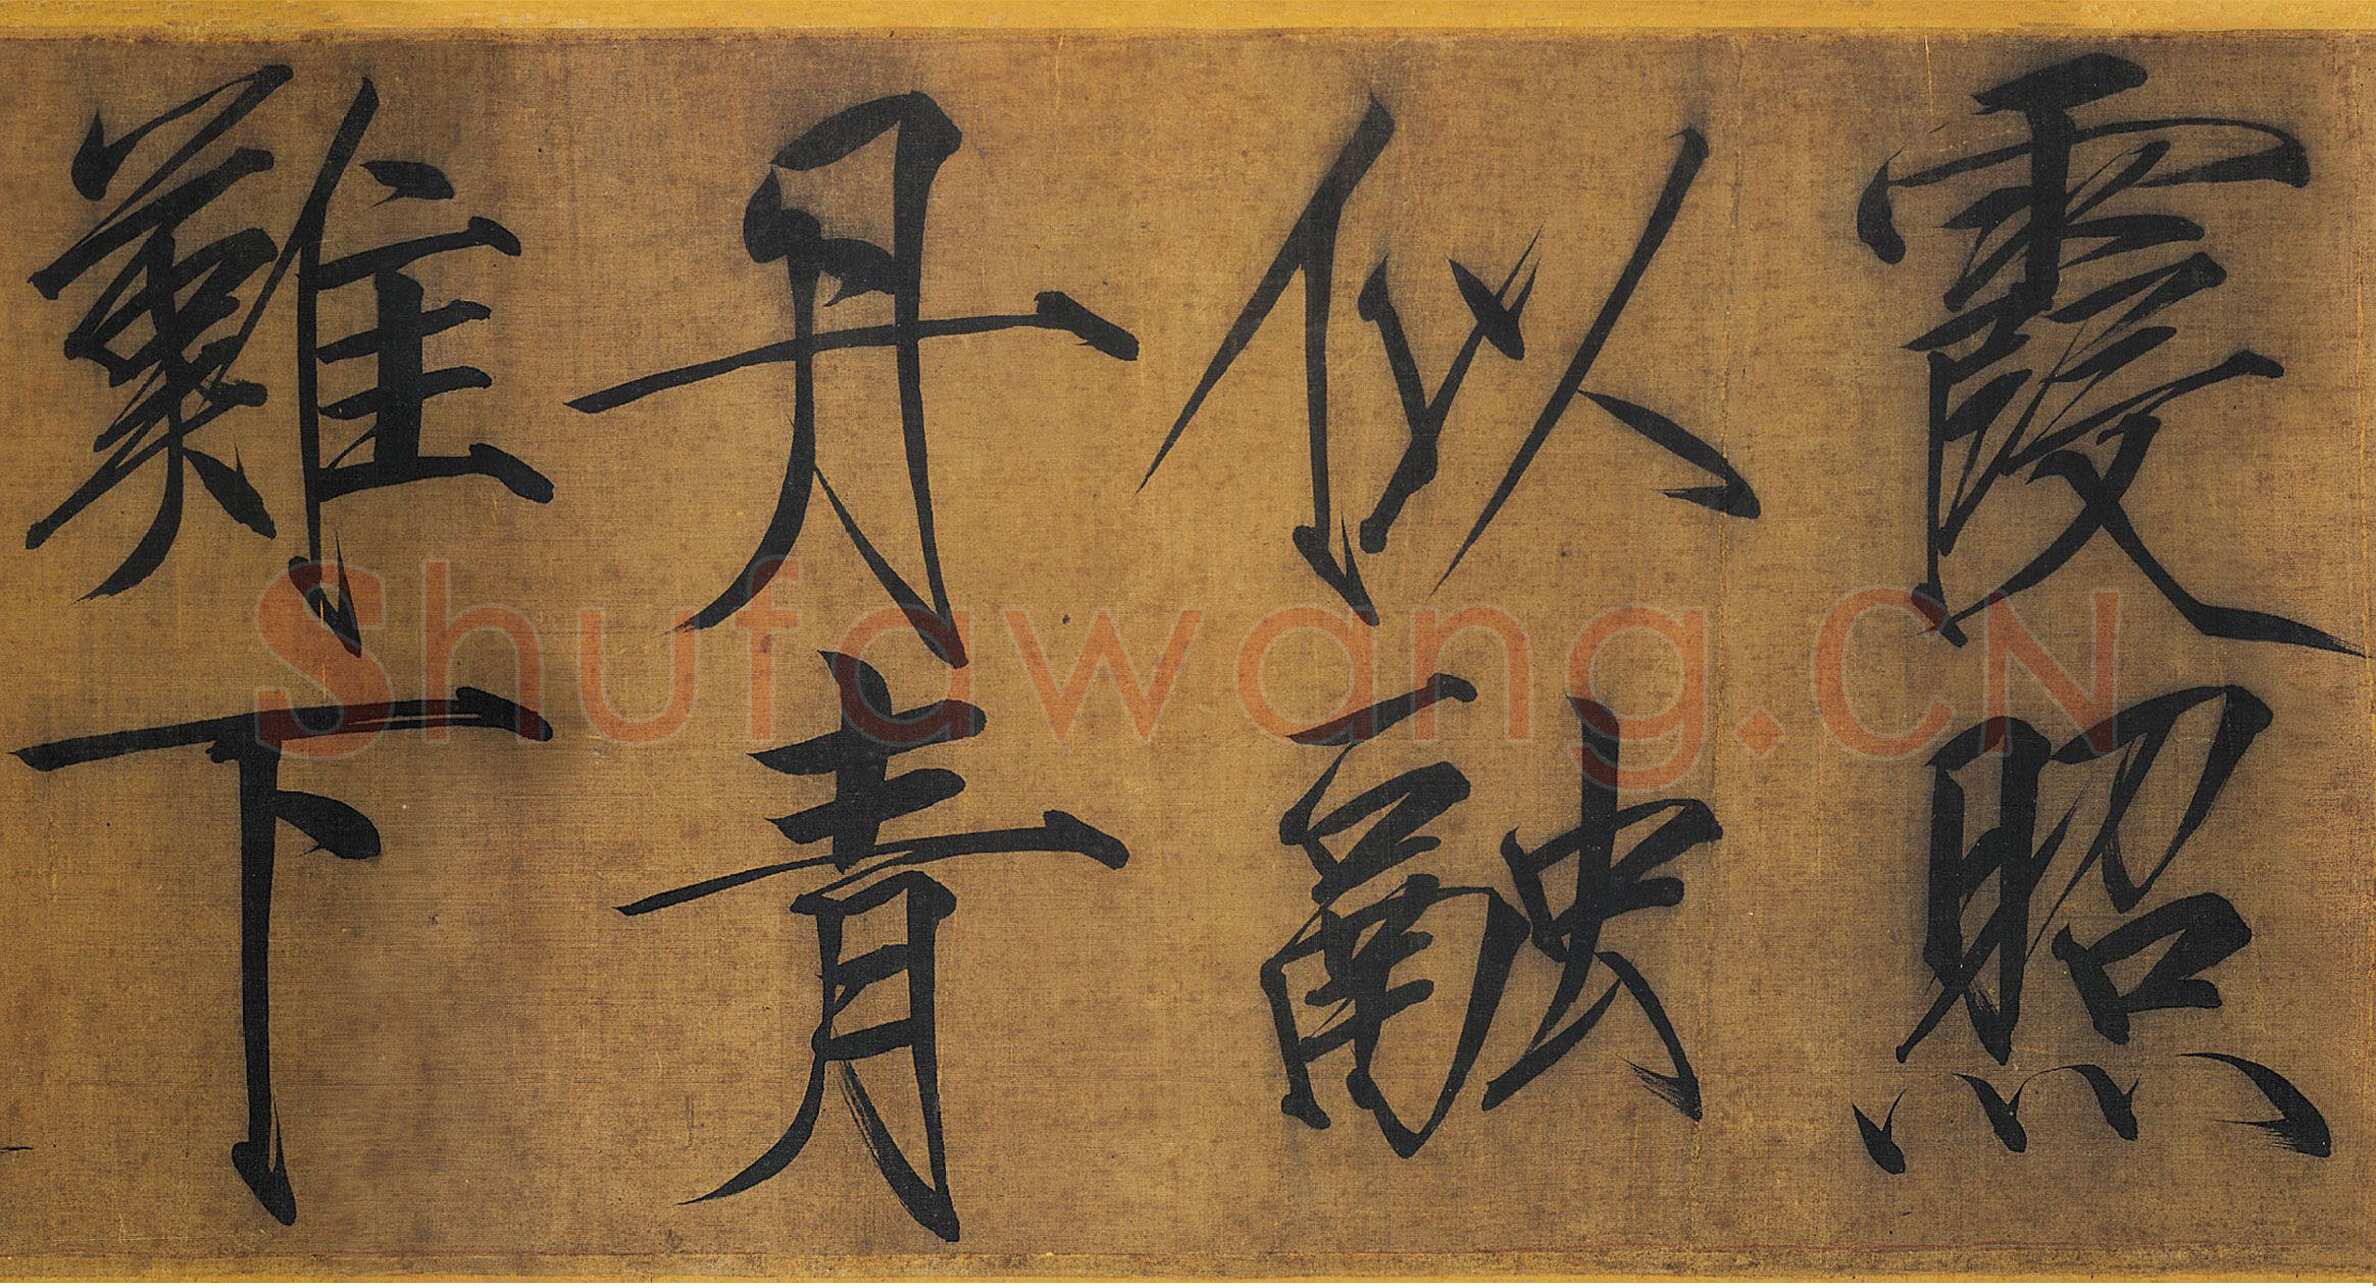 霞照
似融
丹青
難下
Shufawang.CN